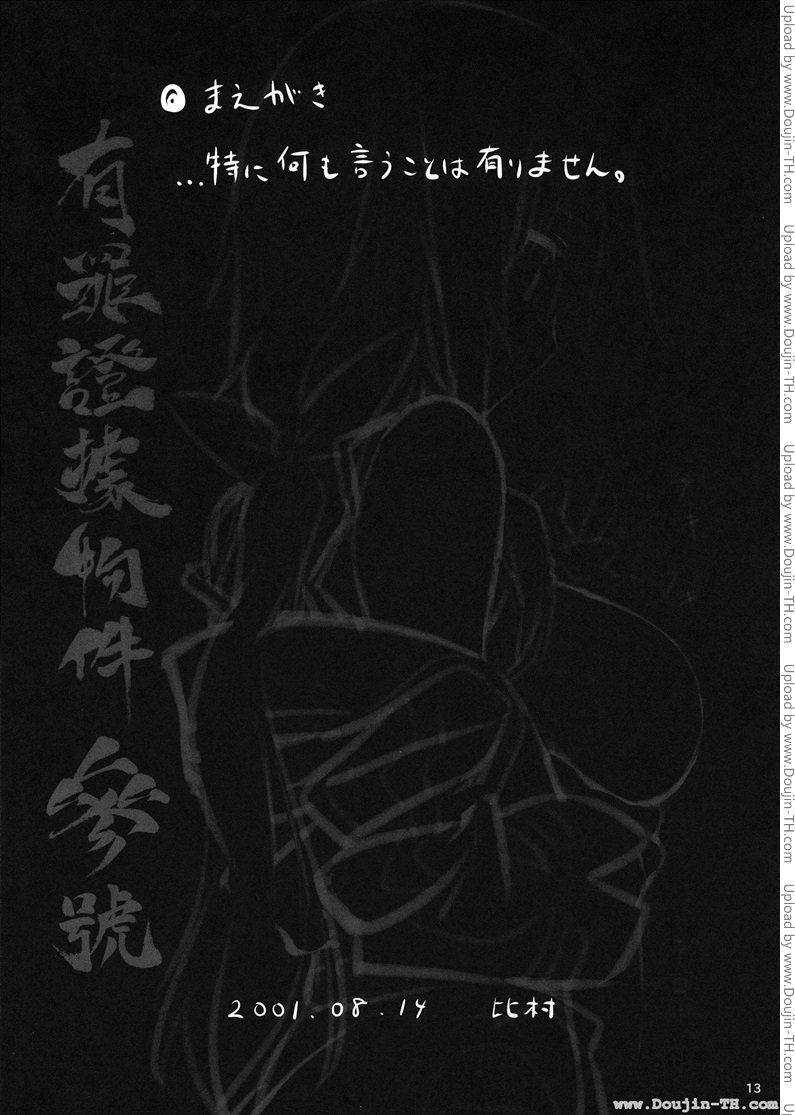 まえがき
...特に何も言うことは有りません。
有罪證據物件 參號
2001.08.14 比村
13
www.Doujin-TH.com
Upload by www.Doujin-TH.com
Upload by www.Doujin-TH.com
Upload by www.Doujin-TH.com
Upload by www.Doujin-TH.com
Upload by www.Doujin-TH.com